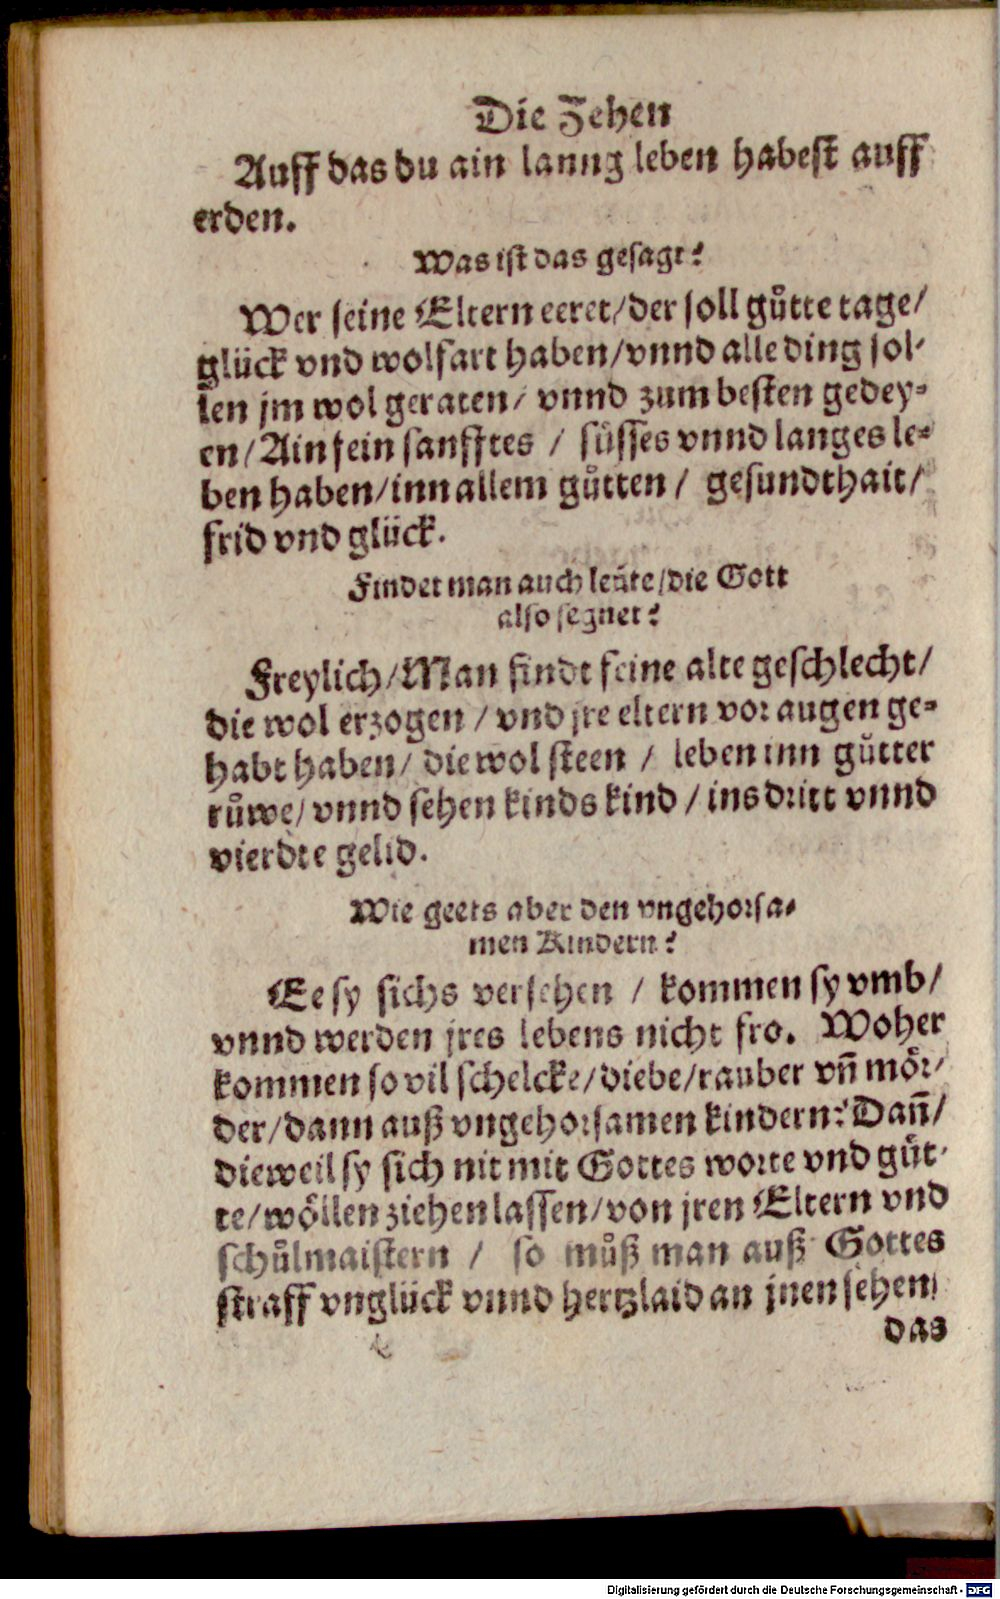 Die Zehen
Auff das du ain lanng leben habest auff
erden.
Was ist das gesagt?
Wer seine Eltern eeret/der soll gůtte tage/
glück vnd wolfart haben/vnnd alle ding sol-
len jm wol geraten/ vnnd zum besten gedey-
en/Ain fein sanfftes / süsses vnnd langes le-
ben haben/inn allem gůtten / gesundthait/
frid vnd glück.
Findet man auch leüte/die Gott
also segnet?
Freylich/Man findt feine alte geschlecht/
die wol erzogen / vnd jre eltern vor augen ge-
habt haben/ die wol steen / leben inn gůtter
růwe/ vnnd sehen kinds kind / ins dritt vnnd
vierdte gelid.
Wie geets aber den vngehorsa-
men Kindern?
Ee sy sichs versehen / kommen sy vmb/
vnnd werden jres lebens nicht fro. Woher
kommen so vil schelcke/diebe/rauber vñ mör-
der/dann auß vngehorsamen kindern? Dañ/
dieweil sy sich nit mit Gottes worte vnd gůt-
te/wöllen ziehen lassen/von jren Eltern vnd
schůlmaistern / so můß man auß Gottes
straff vnglück vnnd hertzlaid an jnen sehen/
das
Digitalisierung gefördert durch die Deutsche Forschungsgemeinschaft - DFG